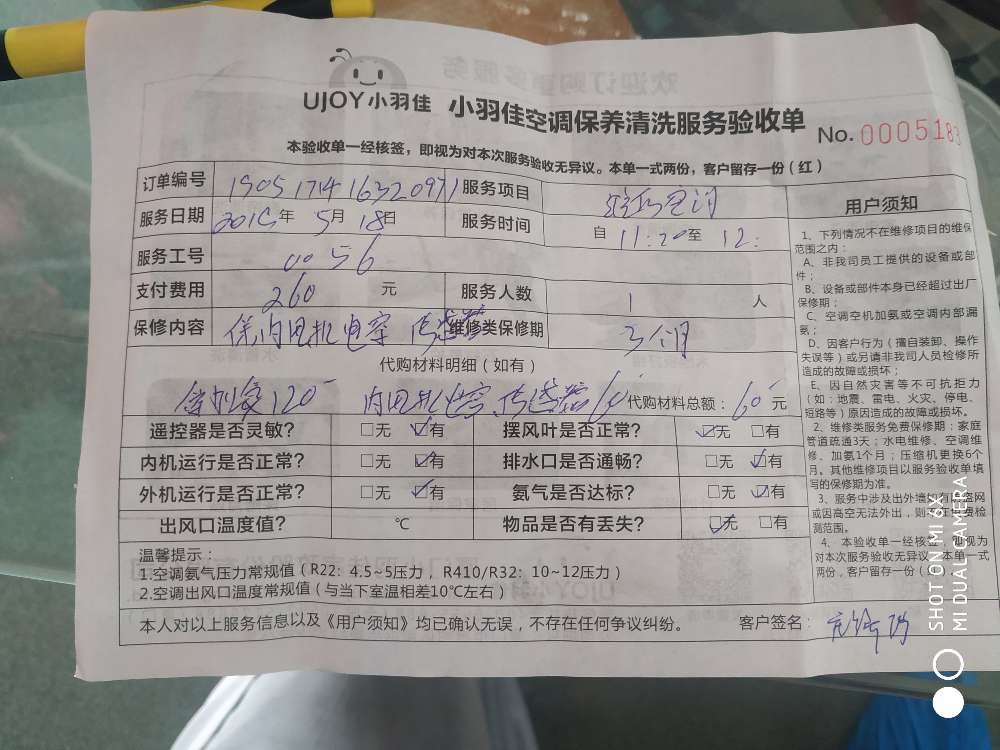 UJOY小羽佳 小羽佳空调保养清洗服务验收单
No. 0005183
本验收单一经核签，即视为对本次服务验收无异议。本单一式两份，客户留存一份（红）
订单编号 1905171416320971 服务项目
服务日期 2019年 5月 18日 服务时间 自 11:20至 12:
服务工号 0056
支付费用 260 元 服务人数 1 人
保修内容 保内电机电容 传感器 维修类保修期 三个月
代购材料明细（如有）
120 内电机电容 传感器 60 代购材料总额：60元
遥控器是否灵敏？ □无 ☑有 摆风叶是否正常？ ☑无 □有
内机运行是否正常？ □无 ☑有 排水口是否通畅？ □无 ☑有
外机运行是否正常？ □无 ☑有 氨气是否达标？ □无 ☑有
出风口温度值？ ℃ 物品是否有丢失？ ☑无 □有
温馨提示：
1.空调氨气压力常规值（R22：4.5~5压力，R410/R32：10~12压力）
2.空调出风口温度常规值（与当下室温相差10℃左右）
本人对以上服务信息以及《用户须知》均已确认无误，不存在任何争议纠纷。 客户签名：
用户须知
1、下列情况不在维修项目的维保
范围之内：
A、非我司员工提供的设备或部
件；
B、设备或部件本身已经超过出厂
保修期；
C、空调空机加氨或空调内部漏
氨；
D、因客户行为（擅自装卸、操作
失误等）或另请非我司人员检修所
造成的故障或损坏；
E、因自然灾害等不可抗拒力
（如：地震、雷电、火灾、停电、
短路等）原因造成的故障或损坏。
2、维修类服务免费保修期：家庭
管道疏通3天；水电维修、空调维
修、加氨1个月；压缩机更换6个
月。其他维修项目以服务验收单填
写的保修期为准。
3、服务中涉及出外墙 有防盗网
或因高空无法外出，则不在 检
测范围。
4、本验收单一经核签，即视为
对本次服务验收无异议。本单一式
两份，客户留存一份（红）。
SHOT ON MI 6X
MI DUAL CAMERA